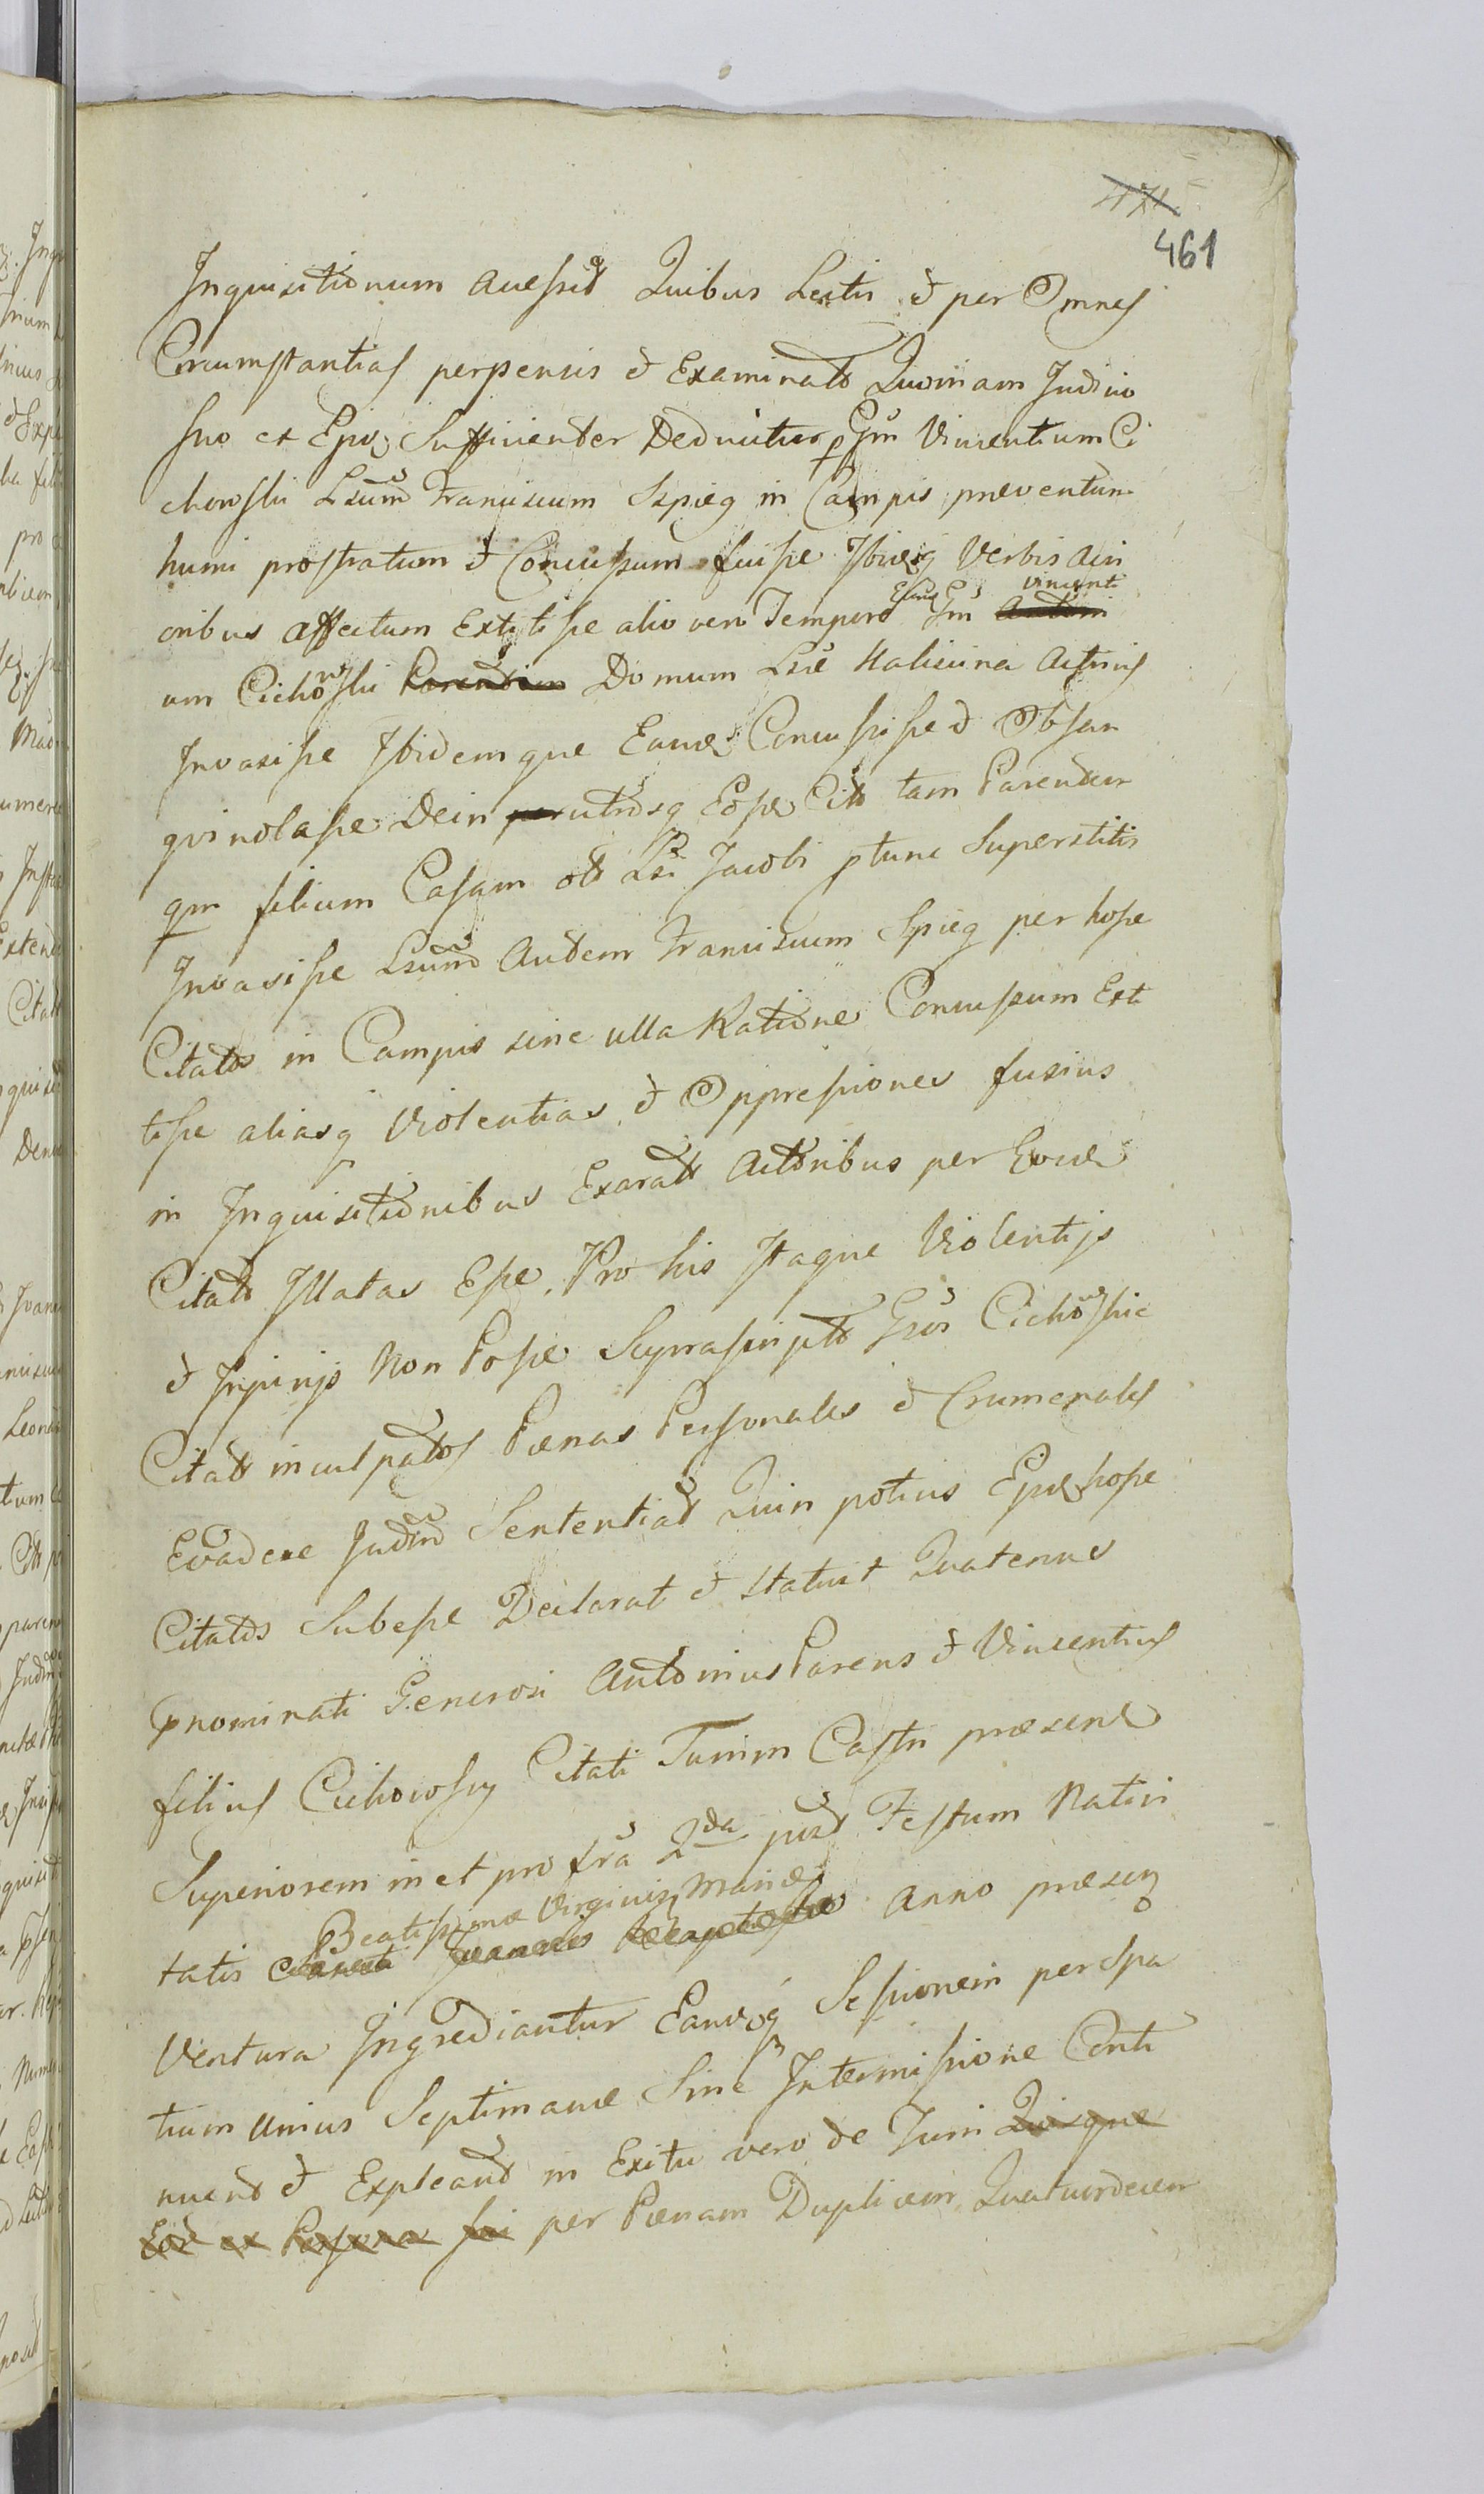 461
Inquisitionum Quibus Lectis & per Omnes
Circumstantias perpensis & Examinat Quoniam Judicio
suo ex Epis Sufficienter Deducitur p Gsm Vincentium Ci
chowski Lsum Franciscum Szpieg in Campis preventum
humi prostratum & Concussum fuisse Ibidq Verbis acri
oribus affectum Extitisse alio vero Tempore Eund Gsm Vincenti
um Cichowski Parentem Domum Lsae Halicina Actricis
Invasisse Ibidemque Eande Concussisse &
Dein utrosq Eosse Citt tam Parentem
qm filium Casam ott Lsi Jacobi ptunc Superstitis
Invasisse Lsum Autem Franciscum Spieg per hosse
Citatos in Campis sine ulla Ratione Concussum Exti
tisse aliasq Violentias & Oppressiones fusius
in Inquisitionibus Exaratt Actoribus per Eosde
Citatt Illatas Esse, Pro his Itaque Violentijs
& Injurijs Non Posse Suprascriptt Gsos Cichowskie
Citatt inculpatos Pænas Personales & Crumenales
Evadere Judm Sententiat Quin potius Eisde hosse
Citatos Subesse Declarat & statuit Quatenus
pnominati Generosi Antonius Parens & Vincentius
filius Cichowscy Citati Turrim Castri præsene
Superiorem in et pro fra 2da post Festum Nativi
Beatissimæ Virginis Mariæ
tatis Sancti Joannis Baptistæ Anno præsen
Ventura Ingrediantur Eandeq Sessionem per Spa
tium Unius Septimanæ Sine Intermissione Conti
nuent & Expleant in Exitu vero de Turri Quisque
Eor ex Persona sui per Pænam Duplicem Quatuordecem